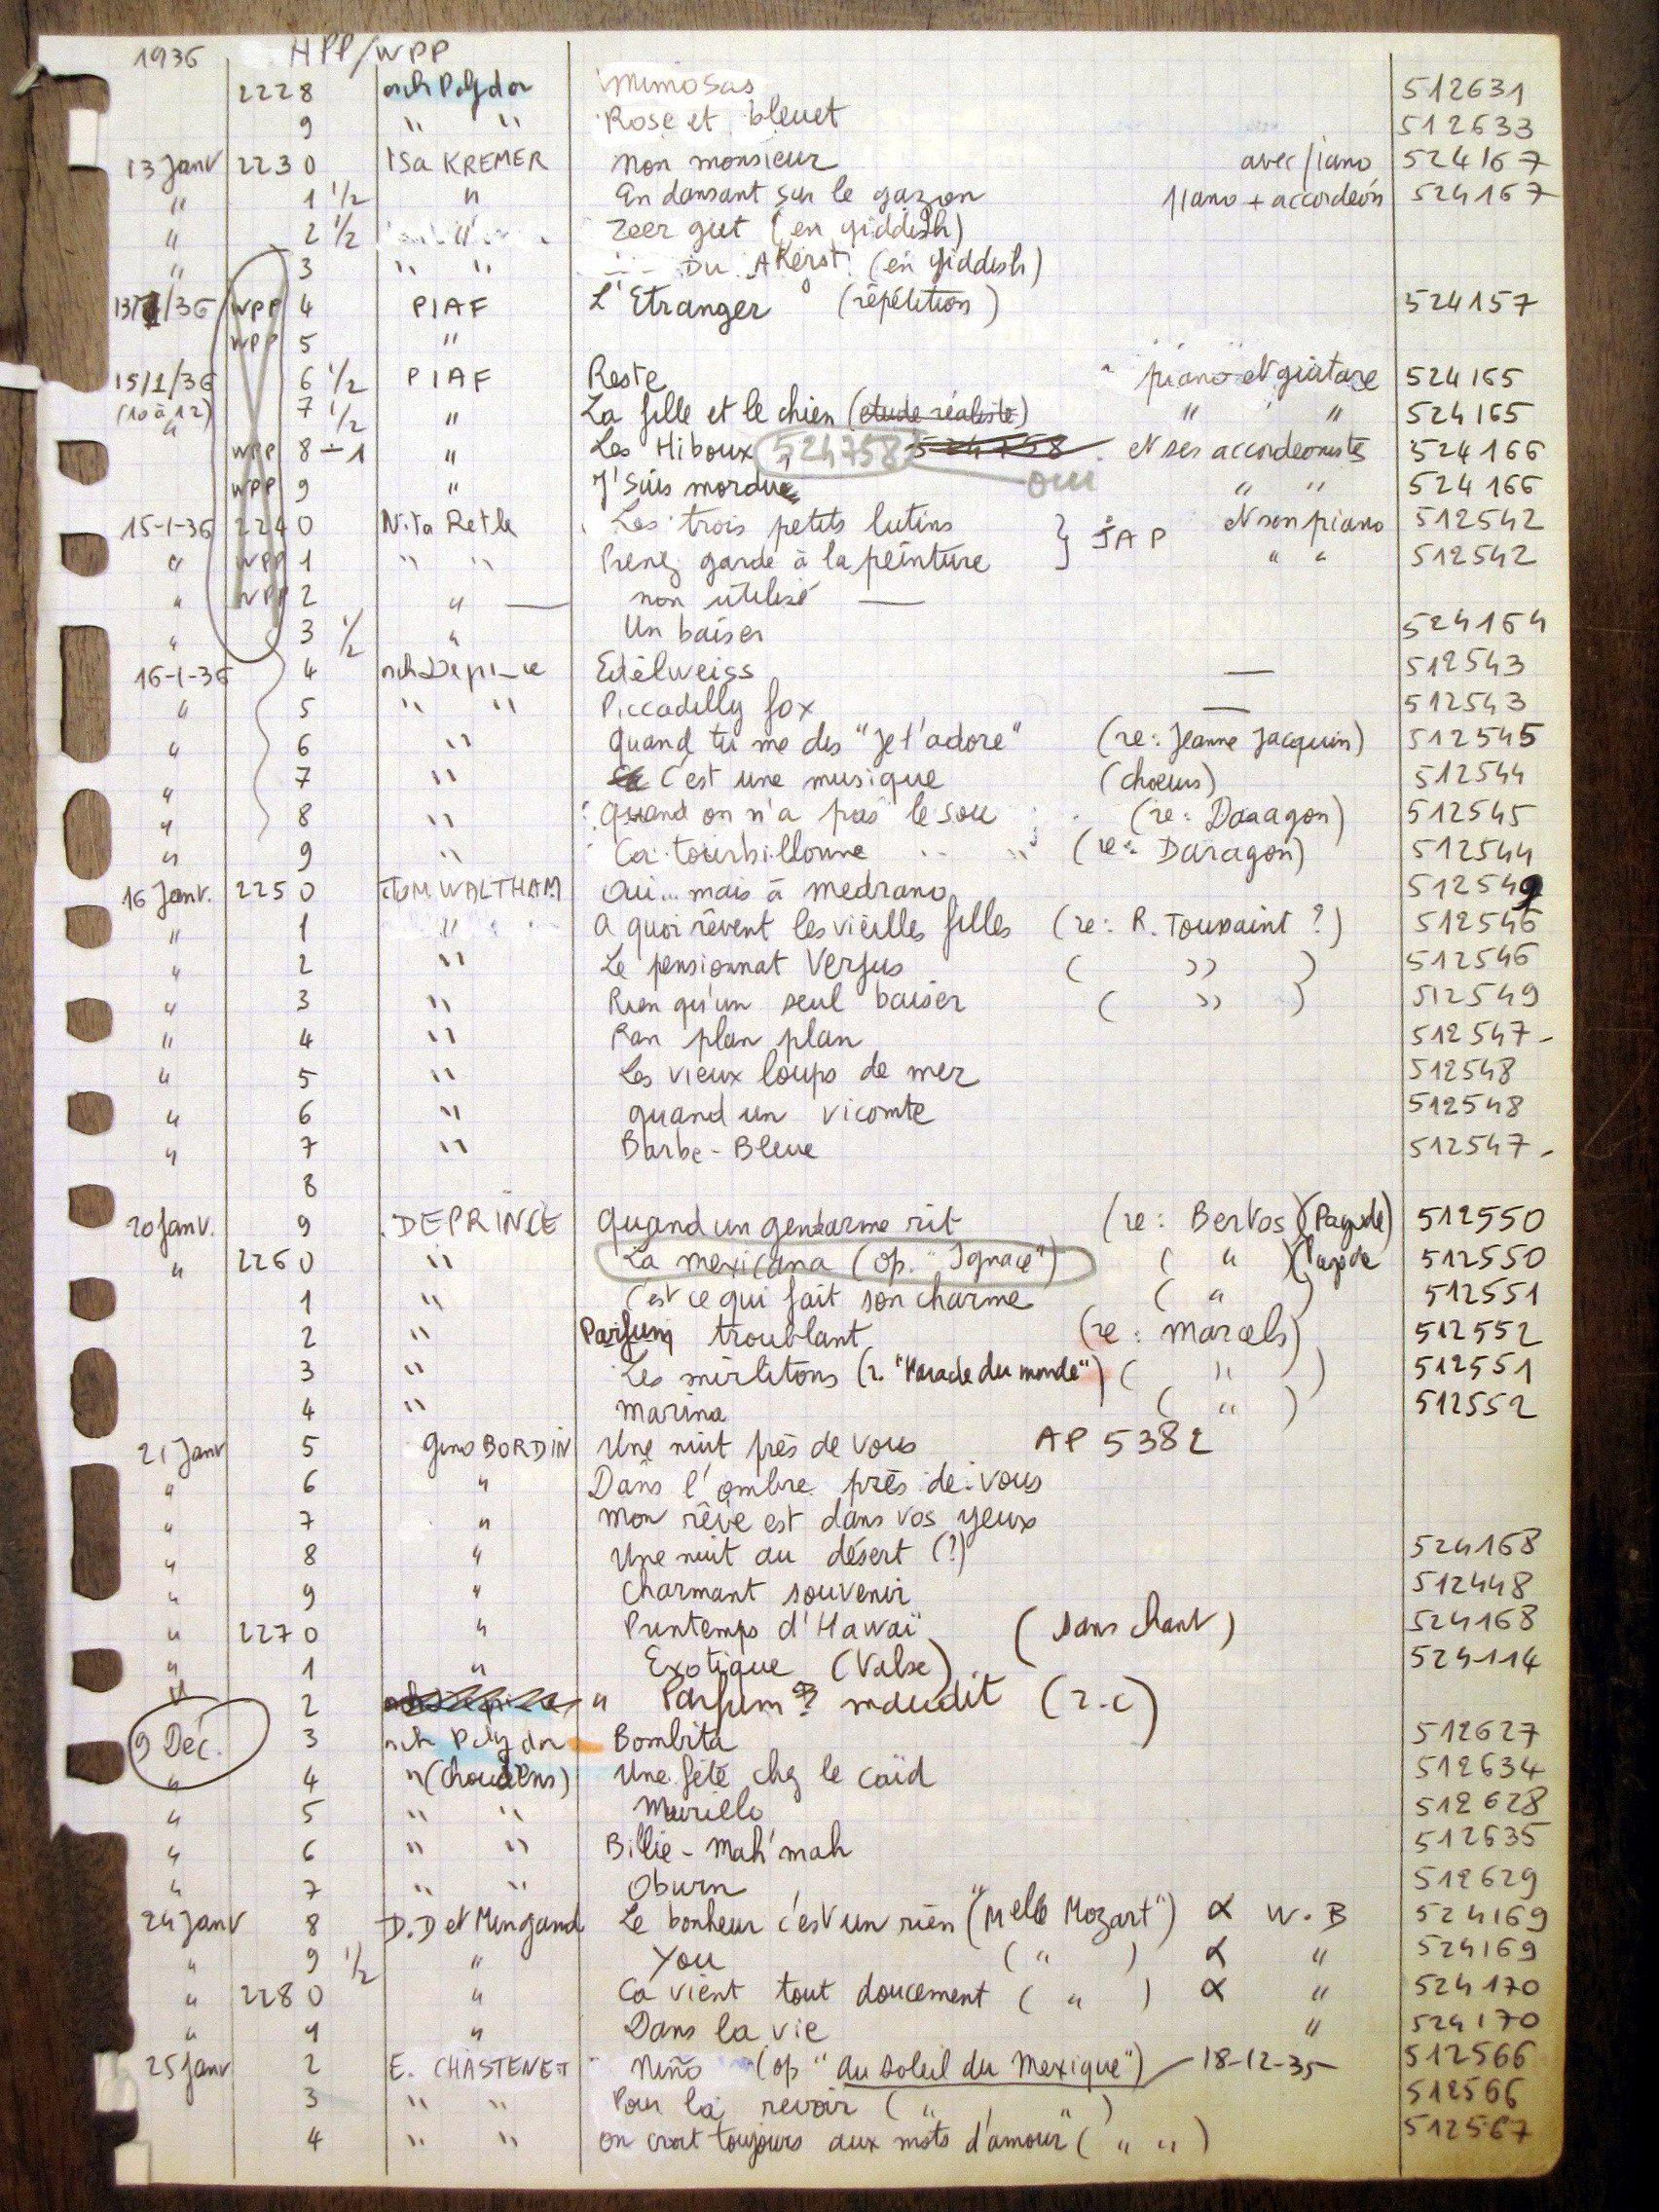 1936 HPP/WPP
2228 orch Polydor Mimosas 512631
9 " " Rose et bleuet 512633
13 Janv 2230 ISa KREMER Non monsieur avec piano 524167
" 1 1/2 " En dansant sur le gazon piano + accordéon 524167
" 2 1/2 " Zeer gut (en yiddish)
" 3 " " Du Akerst (en yiddish)
13/1/36 WPP 4 PIAF L'Etranger (répétition) 524157
WPP 5 "
15/1/36 6 1/2 PIAF Reste piano et guitare 524165
(10 à 12) 7 1/2 " La fille et le chien (etude réaliste) " " 524165
" WPP 8-1 " Les Hiboux 524758 524758 et ses accordeonists 524166
WPP 9 " J'Suis mordue oui " " 524166
15-1-36 2240 Nita Retle Les trois petits lutins } JAP et son piano 512542
" WPP 1 " " Prenez garde à la peinture " " 512542
" WPP 2 " — non utilisé —
" 3 1/2 " Un baiser 524164
16-1-36 4 Edelweiss — 512543
" 5 " " Piccadilly fox — 512543
" 6 " Quand tu me dis "Je t'adore" (re: Jeanne Jacquin) 512545
" 7 " C'est une musique (choeurs) 512544
" 8 " Quand on n'a pas le sou (re: Daragon) 512545
" 9 " Ca tourbillonne (re: Daragon) 512544
16 Janv. 2250 TOM WALTHAM Oui... mais à medrano 512549
" 1 " A quoi rêvent les vieilles filles (re: R. Toussaint ?) 512546
" 2 " Le pensionnat Verjus ( " ) 512546
" 3 " Rien qu'un seul baiser ( " ) 512549
" 4 " Ran plan plan 512547 -
" 5 " Les vieux loups de mer 512548
" 6 " quand un vicomte 512548
" 7 " Barbe-Bleue 512547 -
8
20 Janv. 9 DEPRINCE Quand un gendarme rit (re: Bertos) (Pagode) 512550
" 2260 " La mexicana (op. "Ignace") ( " ) (Pagode 512550
1 " C'est ce qui fait son charme ( " ) 512551
2 " Parfum troublant (re: Marcels) 512552
3 " Les mirlitons (r. "Parade du monde") ( " ) 512551
4 " Marina ( " ) 512552
21 Janv 5 gino BORDIN Une nuit près de vous AP 5382
" 6 " Dans l'ombre près de vous
" 7 " Mon rêve est dans vos yeux
" 8 " Une nuit au désert (?) 524168
" 9 " Charmant souvenir 512448
" 2270 " Printemps d'Hawaï (sans chant) 524168
" 1 " Exotique (Valse) 524114
" 2 " Parfum ? maudit (r.c)
9 Déc. 3 orch Polydor Bombita 512627
" 4 " (Choudens) Une fête chez le caïd 512634
" 5 " " Murillo 512628
" 6 " " Billie-Mah'mah 512635
" 7 " " Oburn 512629
24 Janv 8 D.D et Mingand Le bonheur c'est un rien ("Melle Mozart") α W.B 524169
" 9 1/2 " You ( " ) α " 524169
" 2280 " Ca vient tout doucement ( " ) α " 524170
" 1 " Dans la vie " 524170
25 Janv 2 E. CHASTENET Niño (op "au soleil du Mexique") 18-12-35 512566
3 " " Pour la revoir ( " ) 512566
4 " " On croit toujours aux mots d'amour ( " " ) 512567